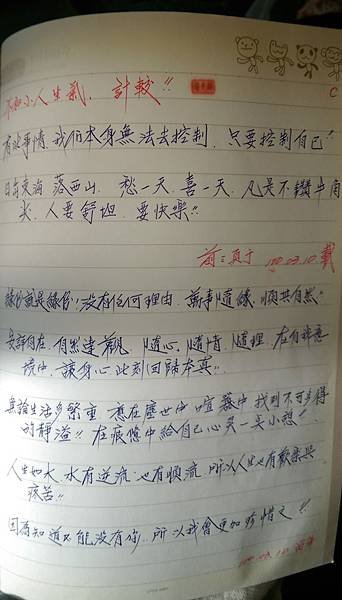 不和小人生氣、計較!!
C
有些事情,我們本身無法去控制,只要控制自己!
日出東海落西山,愁一天,喜一天,凡是不鑽牛角
尖,人要舒坦,要快樂!!
03.10.載
緣份就是緣份,沒有任何理由,萬事隨緣,順其自然!
自然達觀,隨心,隨情,隨理,在
境中,讓身心此刻回歸本真!!
無論生活多繁重,應在塵世中喧囂中找到不可多得
的靜謐!!在疲憊中給自己心靈一
人生如水,水有逆流,也有順流,所以人生也有歡樂與
疾苦!!
因為知道不能沒有你,所以我會更加珍惜